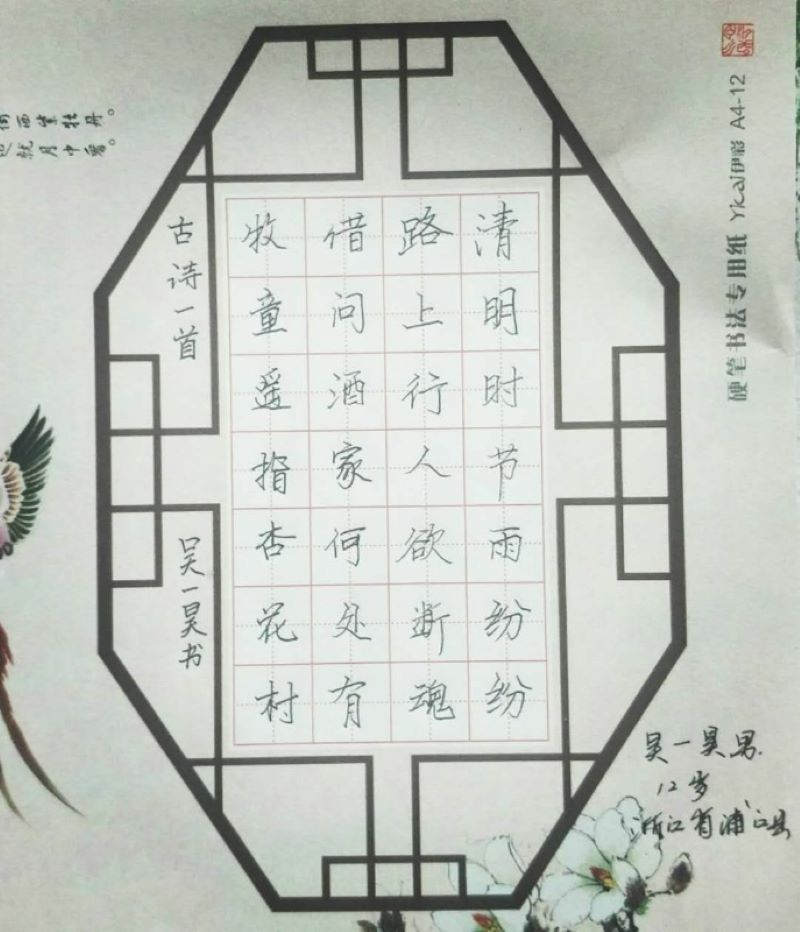 清明时节雨纷纷
路上行人欲断魂
借问酒家何处有
牧童遥指杏花村
古诗一首
吴一昊书
硬笔书法专用纸 Ykal伊彩 A4-12
吴一昊男.
12岁
浙江省浦江县
牡丹。
就月中看。